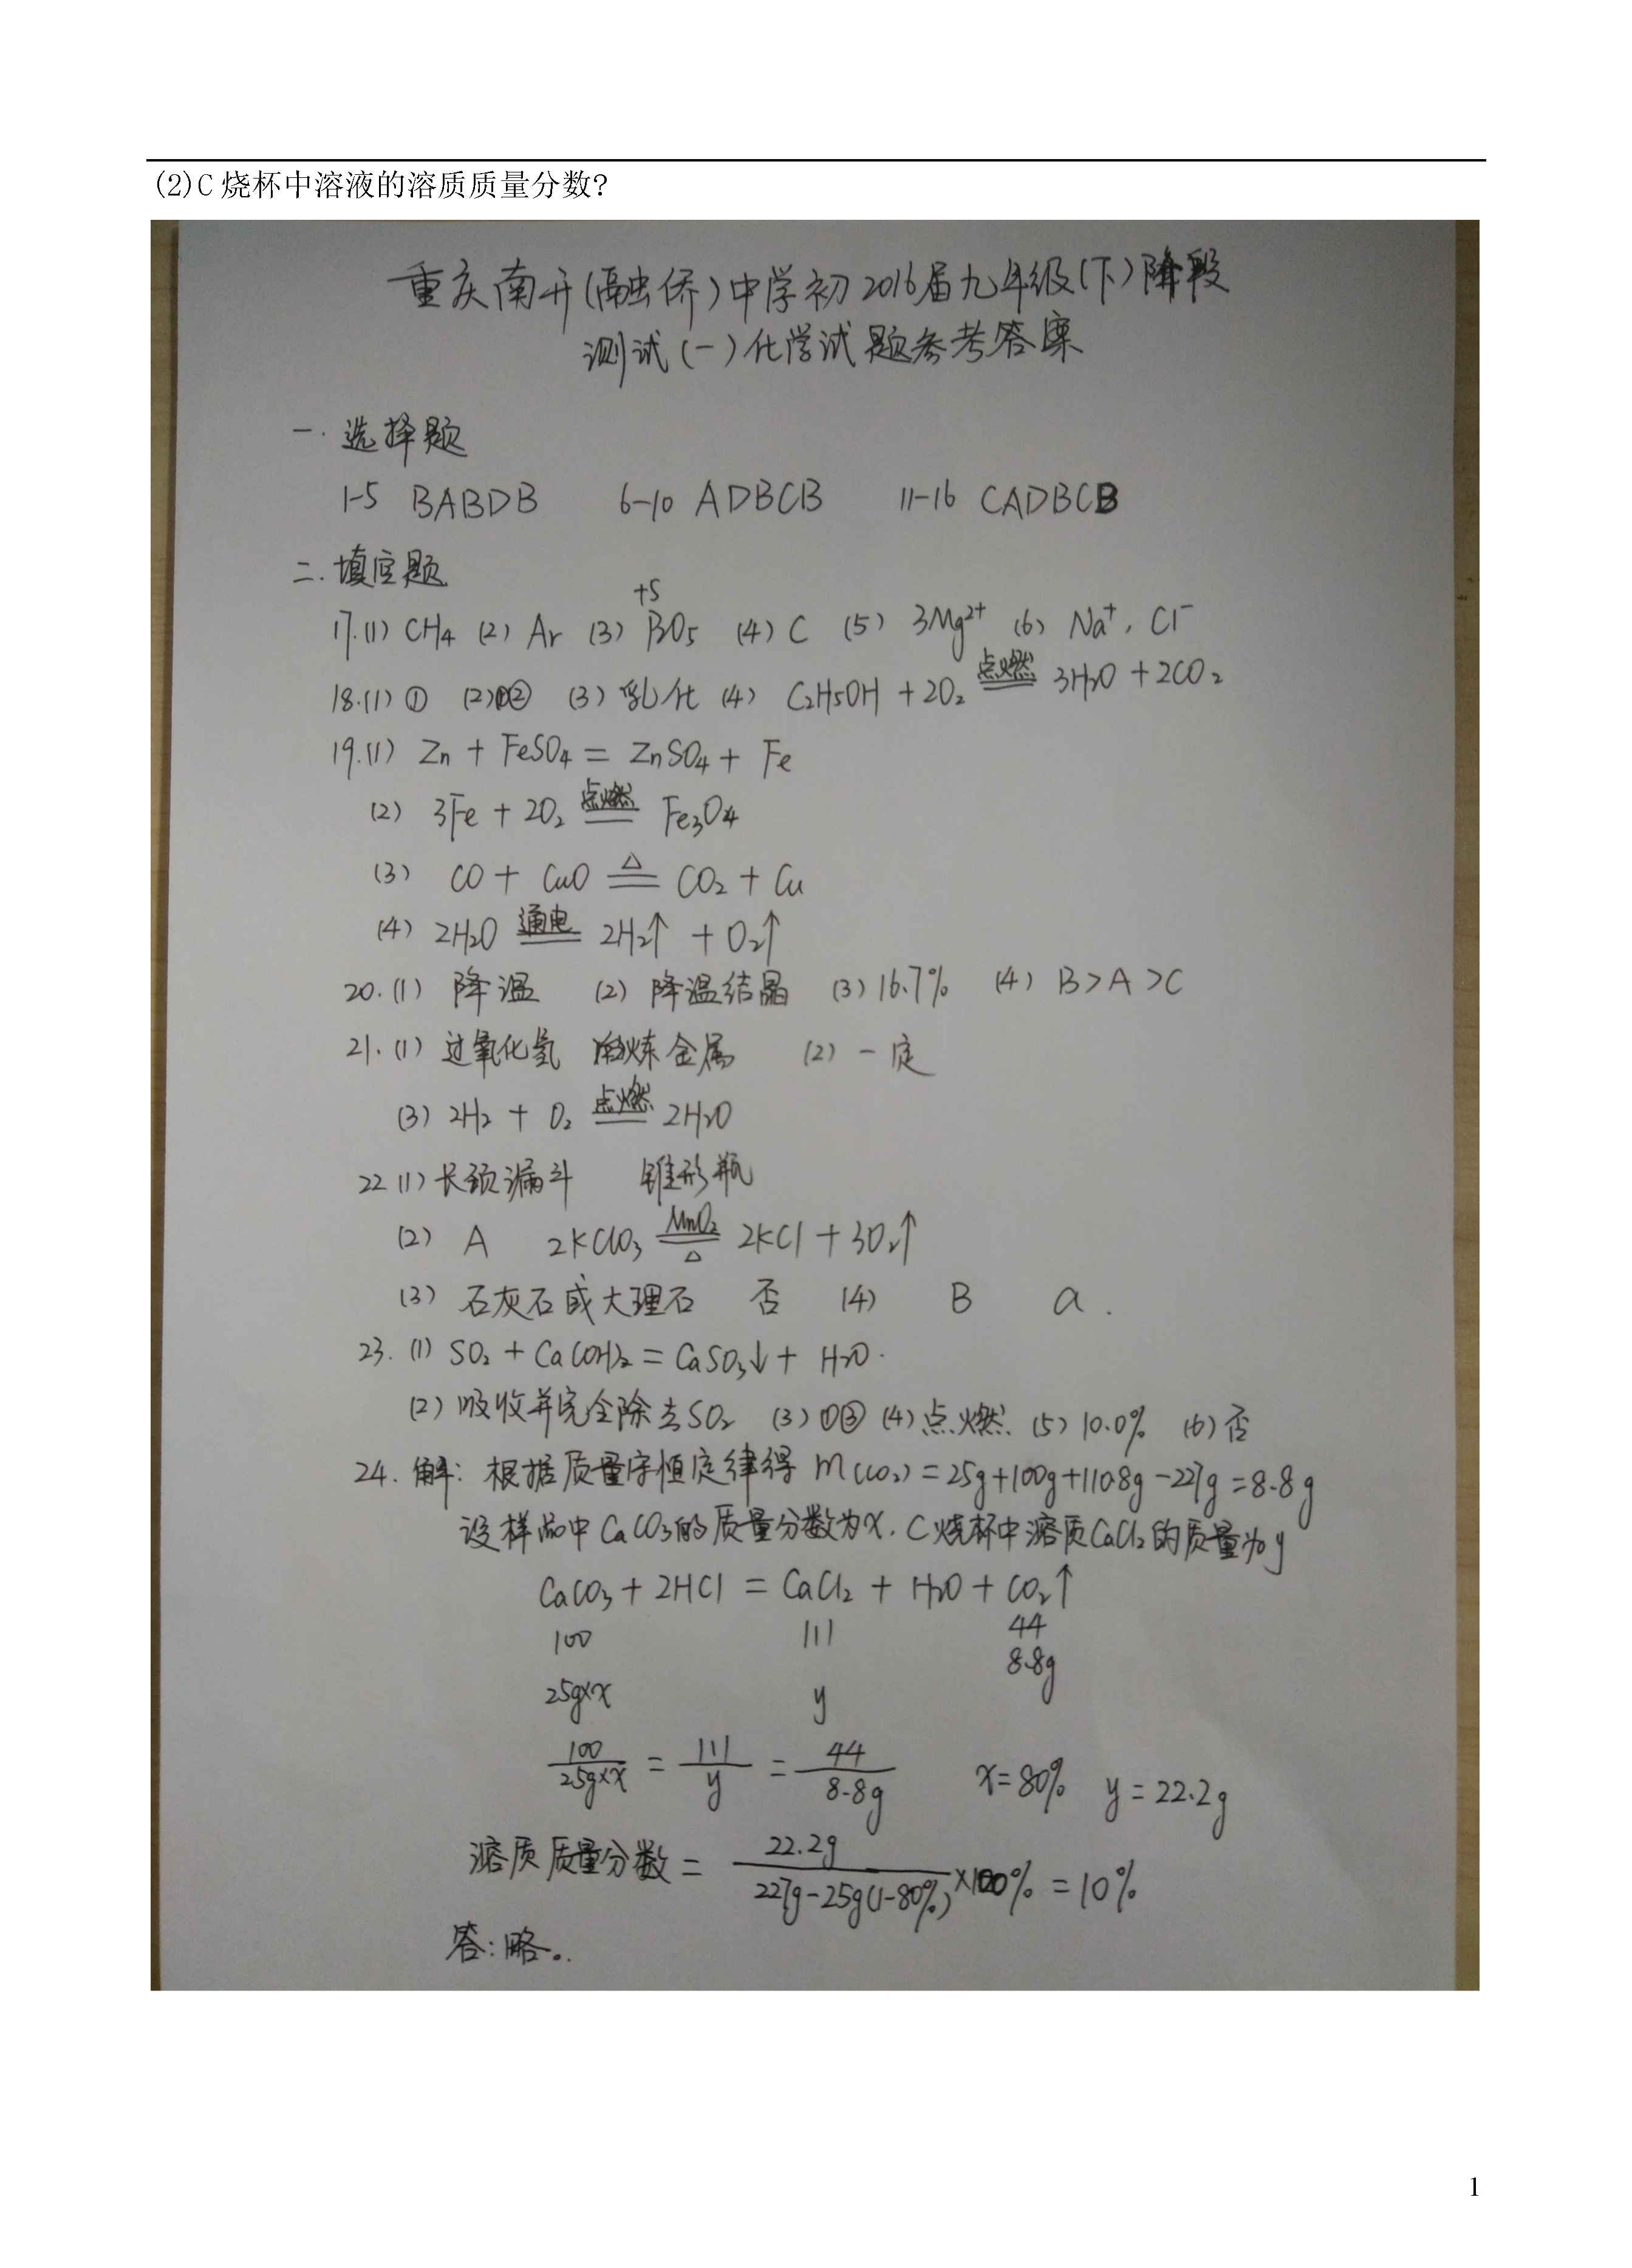 (2)C 烧杯中溶液的溶质质量分数?
重庆南开(融侨)中学初2016届九年级(下)阶段
测试(一)化学试题参考答案
一.选择题
1-5 BABDB 6-10 ADBCB 11-16 CADBCB
二.填空题
+5
17.(1) CH₄ (2) Ar (3) BO₅ (4) C (5) 3Mg²⁺ (6) Na⁺, Cl⁻
18.(1) ① (2)①② (3) 乳化 (4) C₂H₅OH + 2O₂ 点燃 3H₂O + 2CO₂
19.(1) Zn + FeSO₄ = ZnSO₄ + Fe
(2) 3Fe + 2O₂ 点燃 Fe₃O₄
(3) CO + CuO △ CO₂ + Cu
(4) 2H₂O 通电 2H₂↑ + O₂↑
20.(1) 降温 (2) 降温结晶 (3) 16.7% (4) B>A>C
21.(1) 过氧化氢 冶炼金属 (2) 一定
(3) 2H₂ + O₂ 点燃 2H₂O
22 (1) 长颈漏斗 锥形瓶
(2) A 2KClO₃ MnO₂ △ 2KCl + 3O₂↑
(3) 石灰石或大理石 否 (4) B a.
23. (1) SO₂ + Ca(OH)₂ = CaSO₃↓ + H₂O.
(2) 吸收并完全除去SO₂ (3) ①③ (4) 点燃 (5) 10.0% (6) 否
24. 解: 根据质量守恒定律得 m(CO₂) = 25g+100g+110.8g-227g = 8.8g
设样品中CaCO₃的质量分数为x, C烧杯中溶质CaCl₂的质量为y
CaCO₃ + 2HCl = CaCl₂ + H₂O + CO₂↑
100 111 44
8.8g
25g×x y
100/25g×x = 111/y = 44/8.8g x=80% y=22.2g
溶质质量分数 = 22.2g/227g-25g(1-80%) ×100% = 10%
答:略。
1